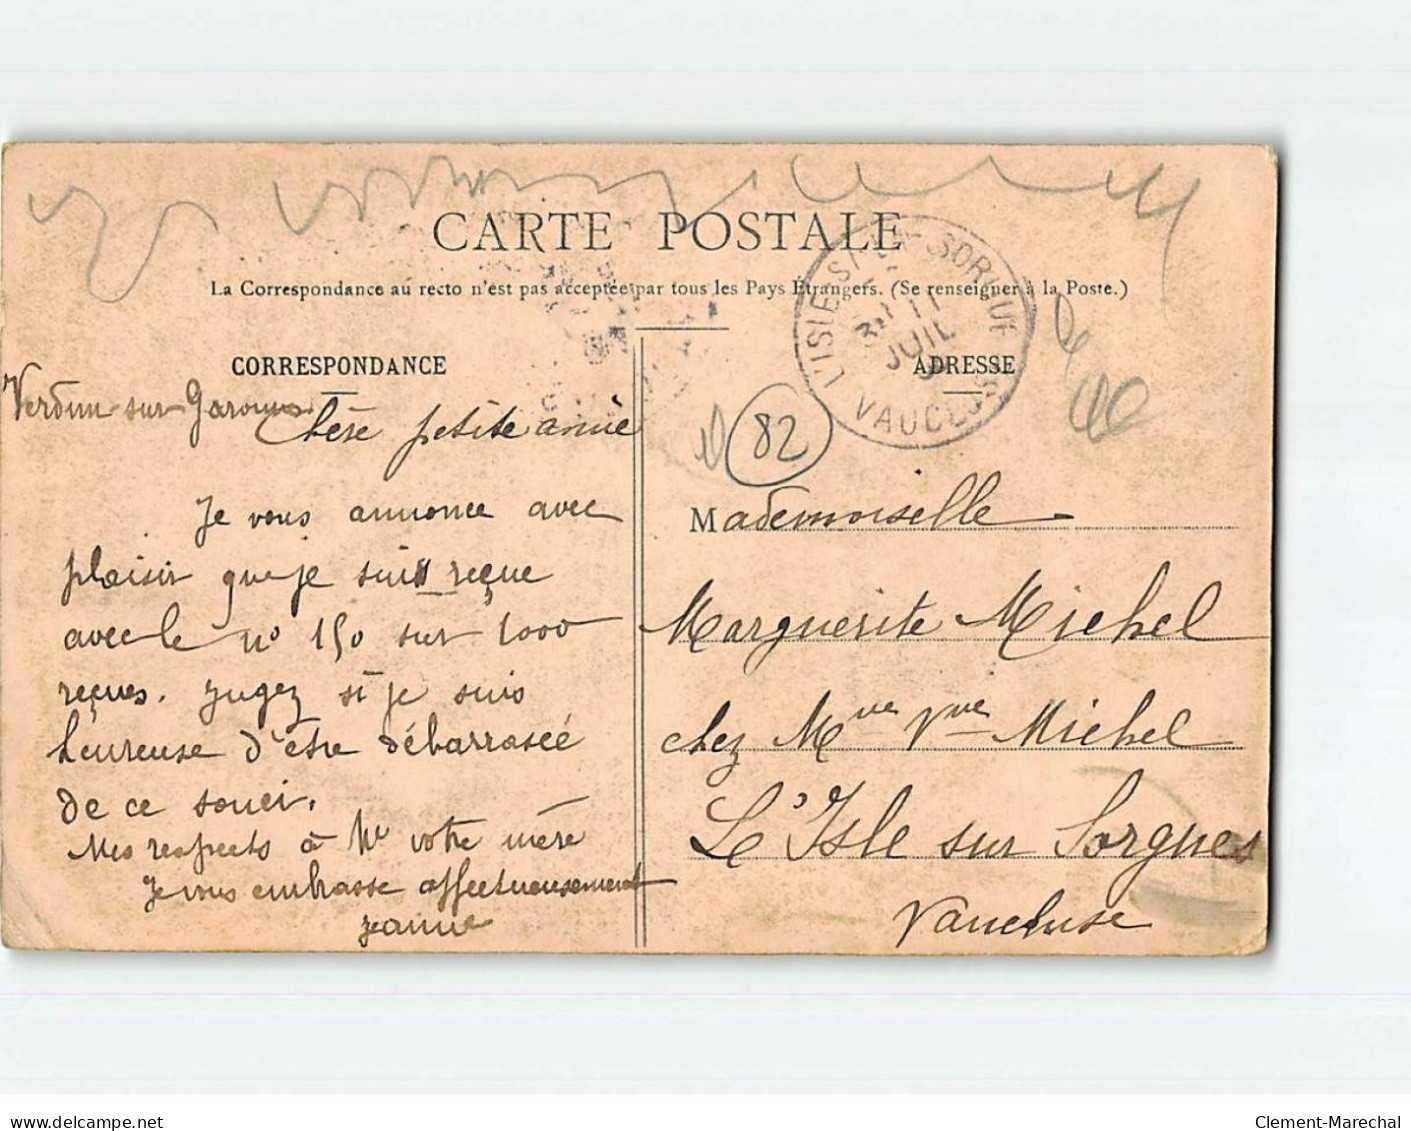 CARTE POSTALE
La Correspondance au recto n'est pas acceptée par tous les Pays Étrangers. (Se renseigner à la Poste.)
CORRESPONDANCE
Verdun-sur-Garonne
Chère petite amie
Je vous annonce avec
plaisir que je suis reçue
avec le nº 150 sur 1000
reçues. Jugez si je suis
heureuse d'être débarrassée
de ce souci.
Mes respects à Me votre mère
Je vous embrasse affectueusement
Jeanne
L'ISLE SUR SORGUE
11
JUIL
VAUCLUSE
ADRESSE
82
Mademoiselle
Marguerite Michel
chez Mme Vve Michel
L'Isle sur Sorgues
Vaucluse
delcampe.net
Clement-Marechal